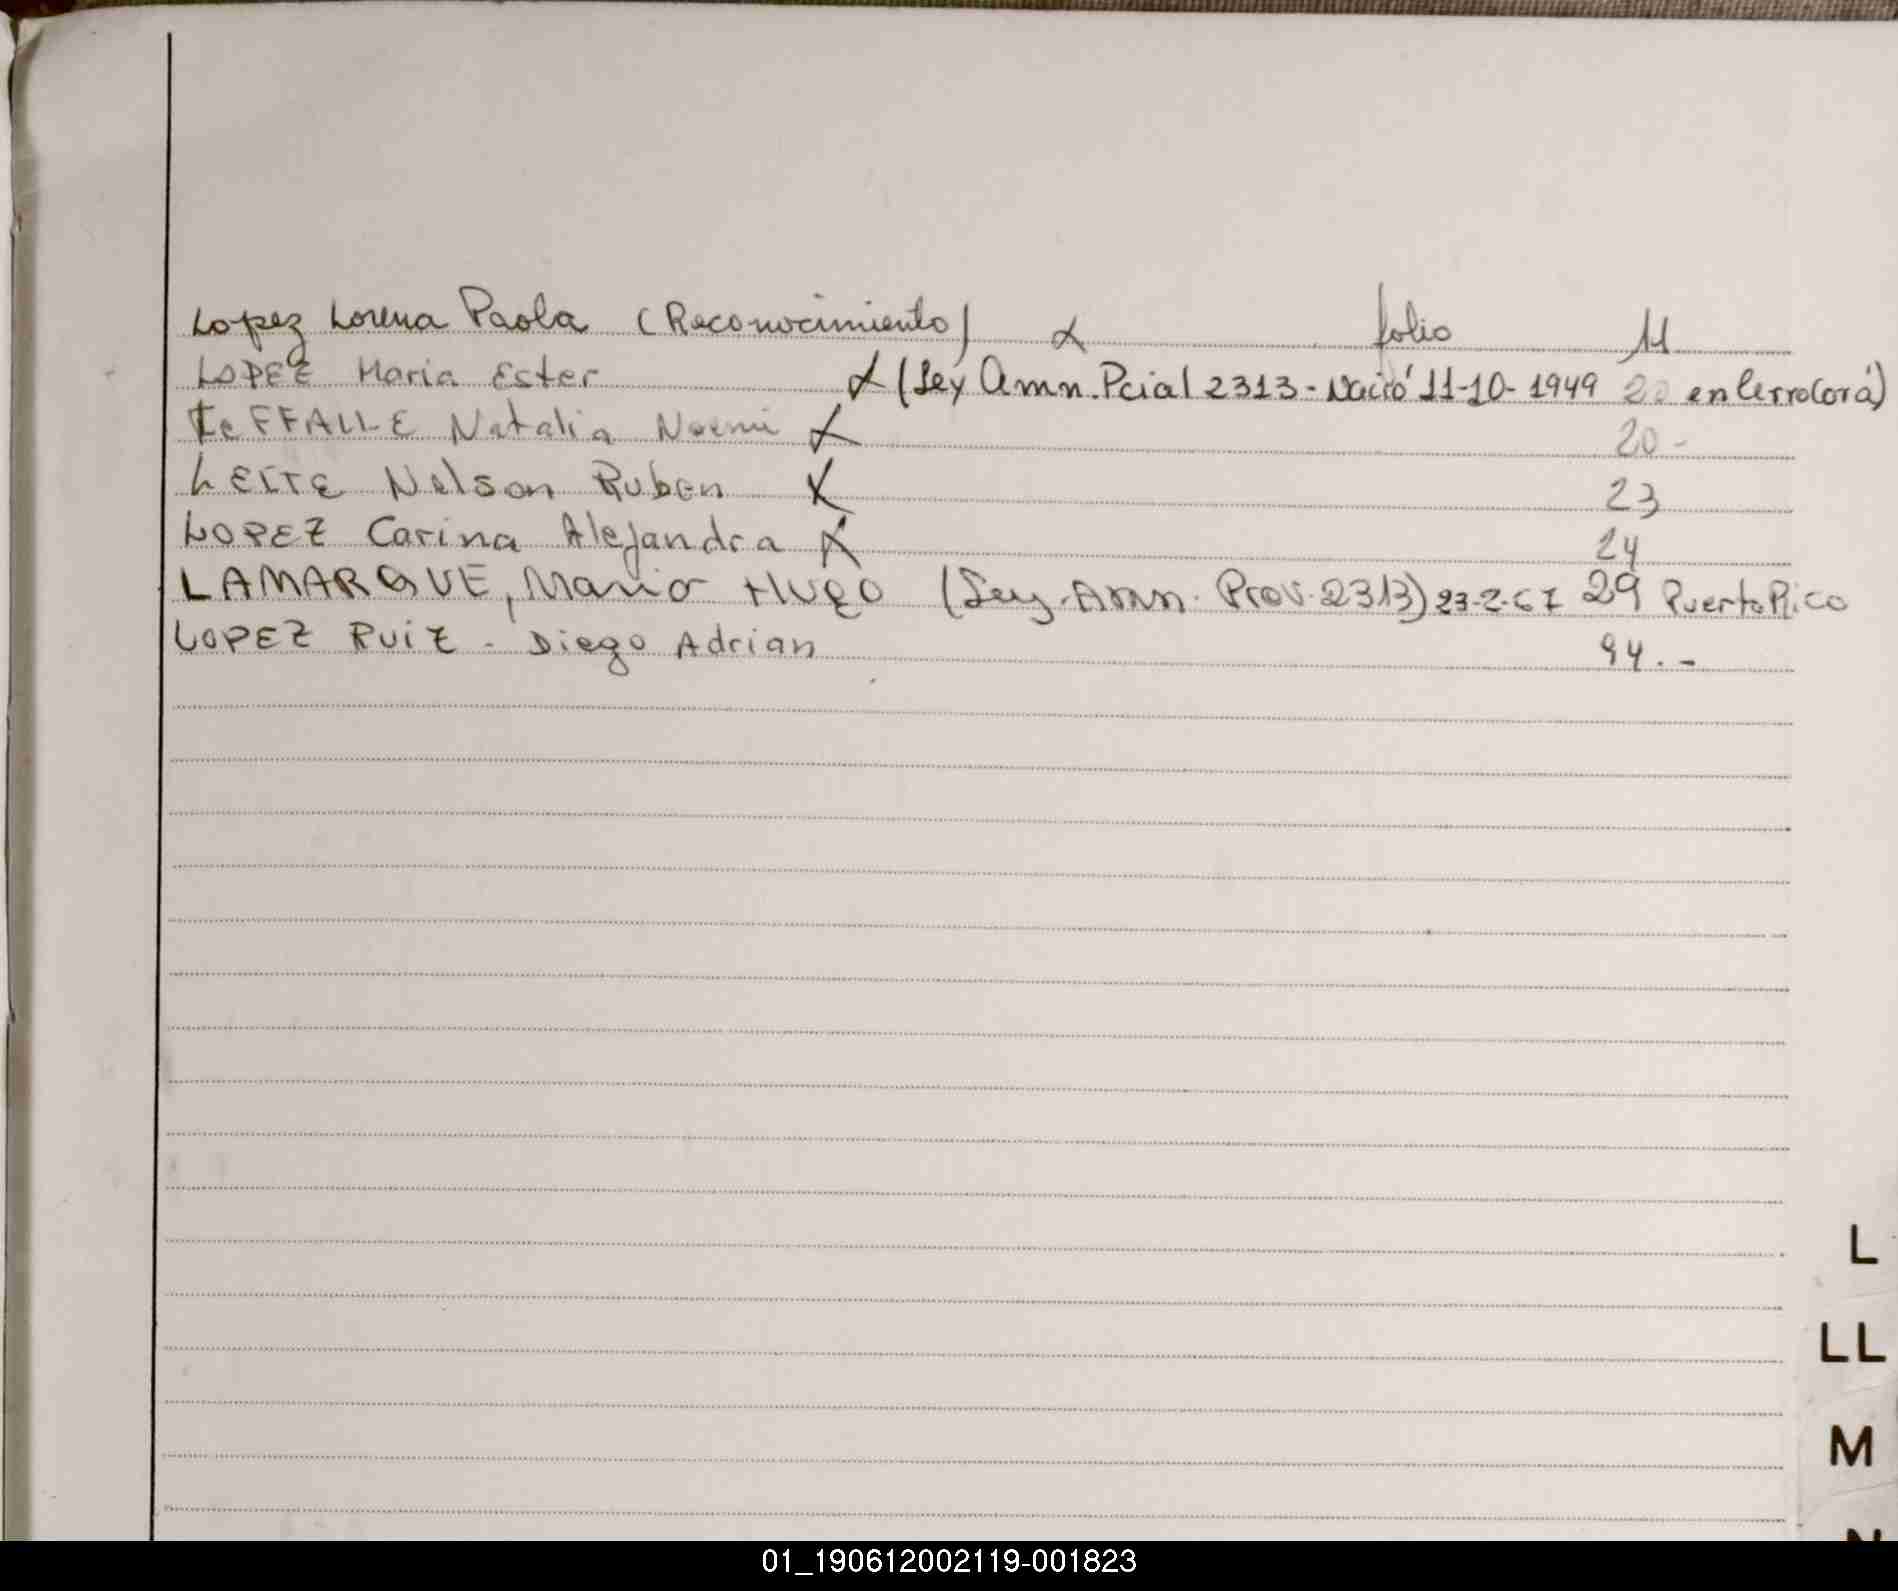 Lopez Lorena Paola (Reconocimiento) X folio 11
LOPEZ Maria Ester X (Ley Amn. Pcial 2313 - Nació 11-10-1949 20 en Cerro Corá)
LeFFALLE Natalia Noemi X 20 -
LEITE Nelson Ruben X 23
LOPEZ Carina Alejandra X 24
LAMARQUE, Mario Hugo (Ley. Amn. Prov. 2313) 23-2-67 29 Puerto Rico
LOPEZ RUIZ - Diego Adrian 94.-
L
LL
M
N
01_190612002119-001823